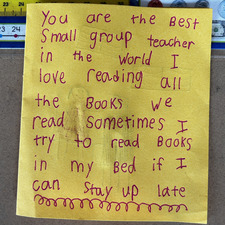 You are the Best
Small group teacher
in the world I
love reading all
the Books we
read Sometimes I
try to read Books
in my Bed if I
can stay up late